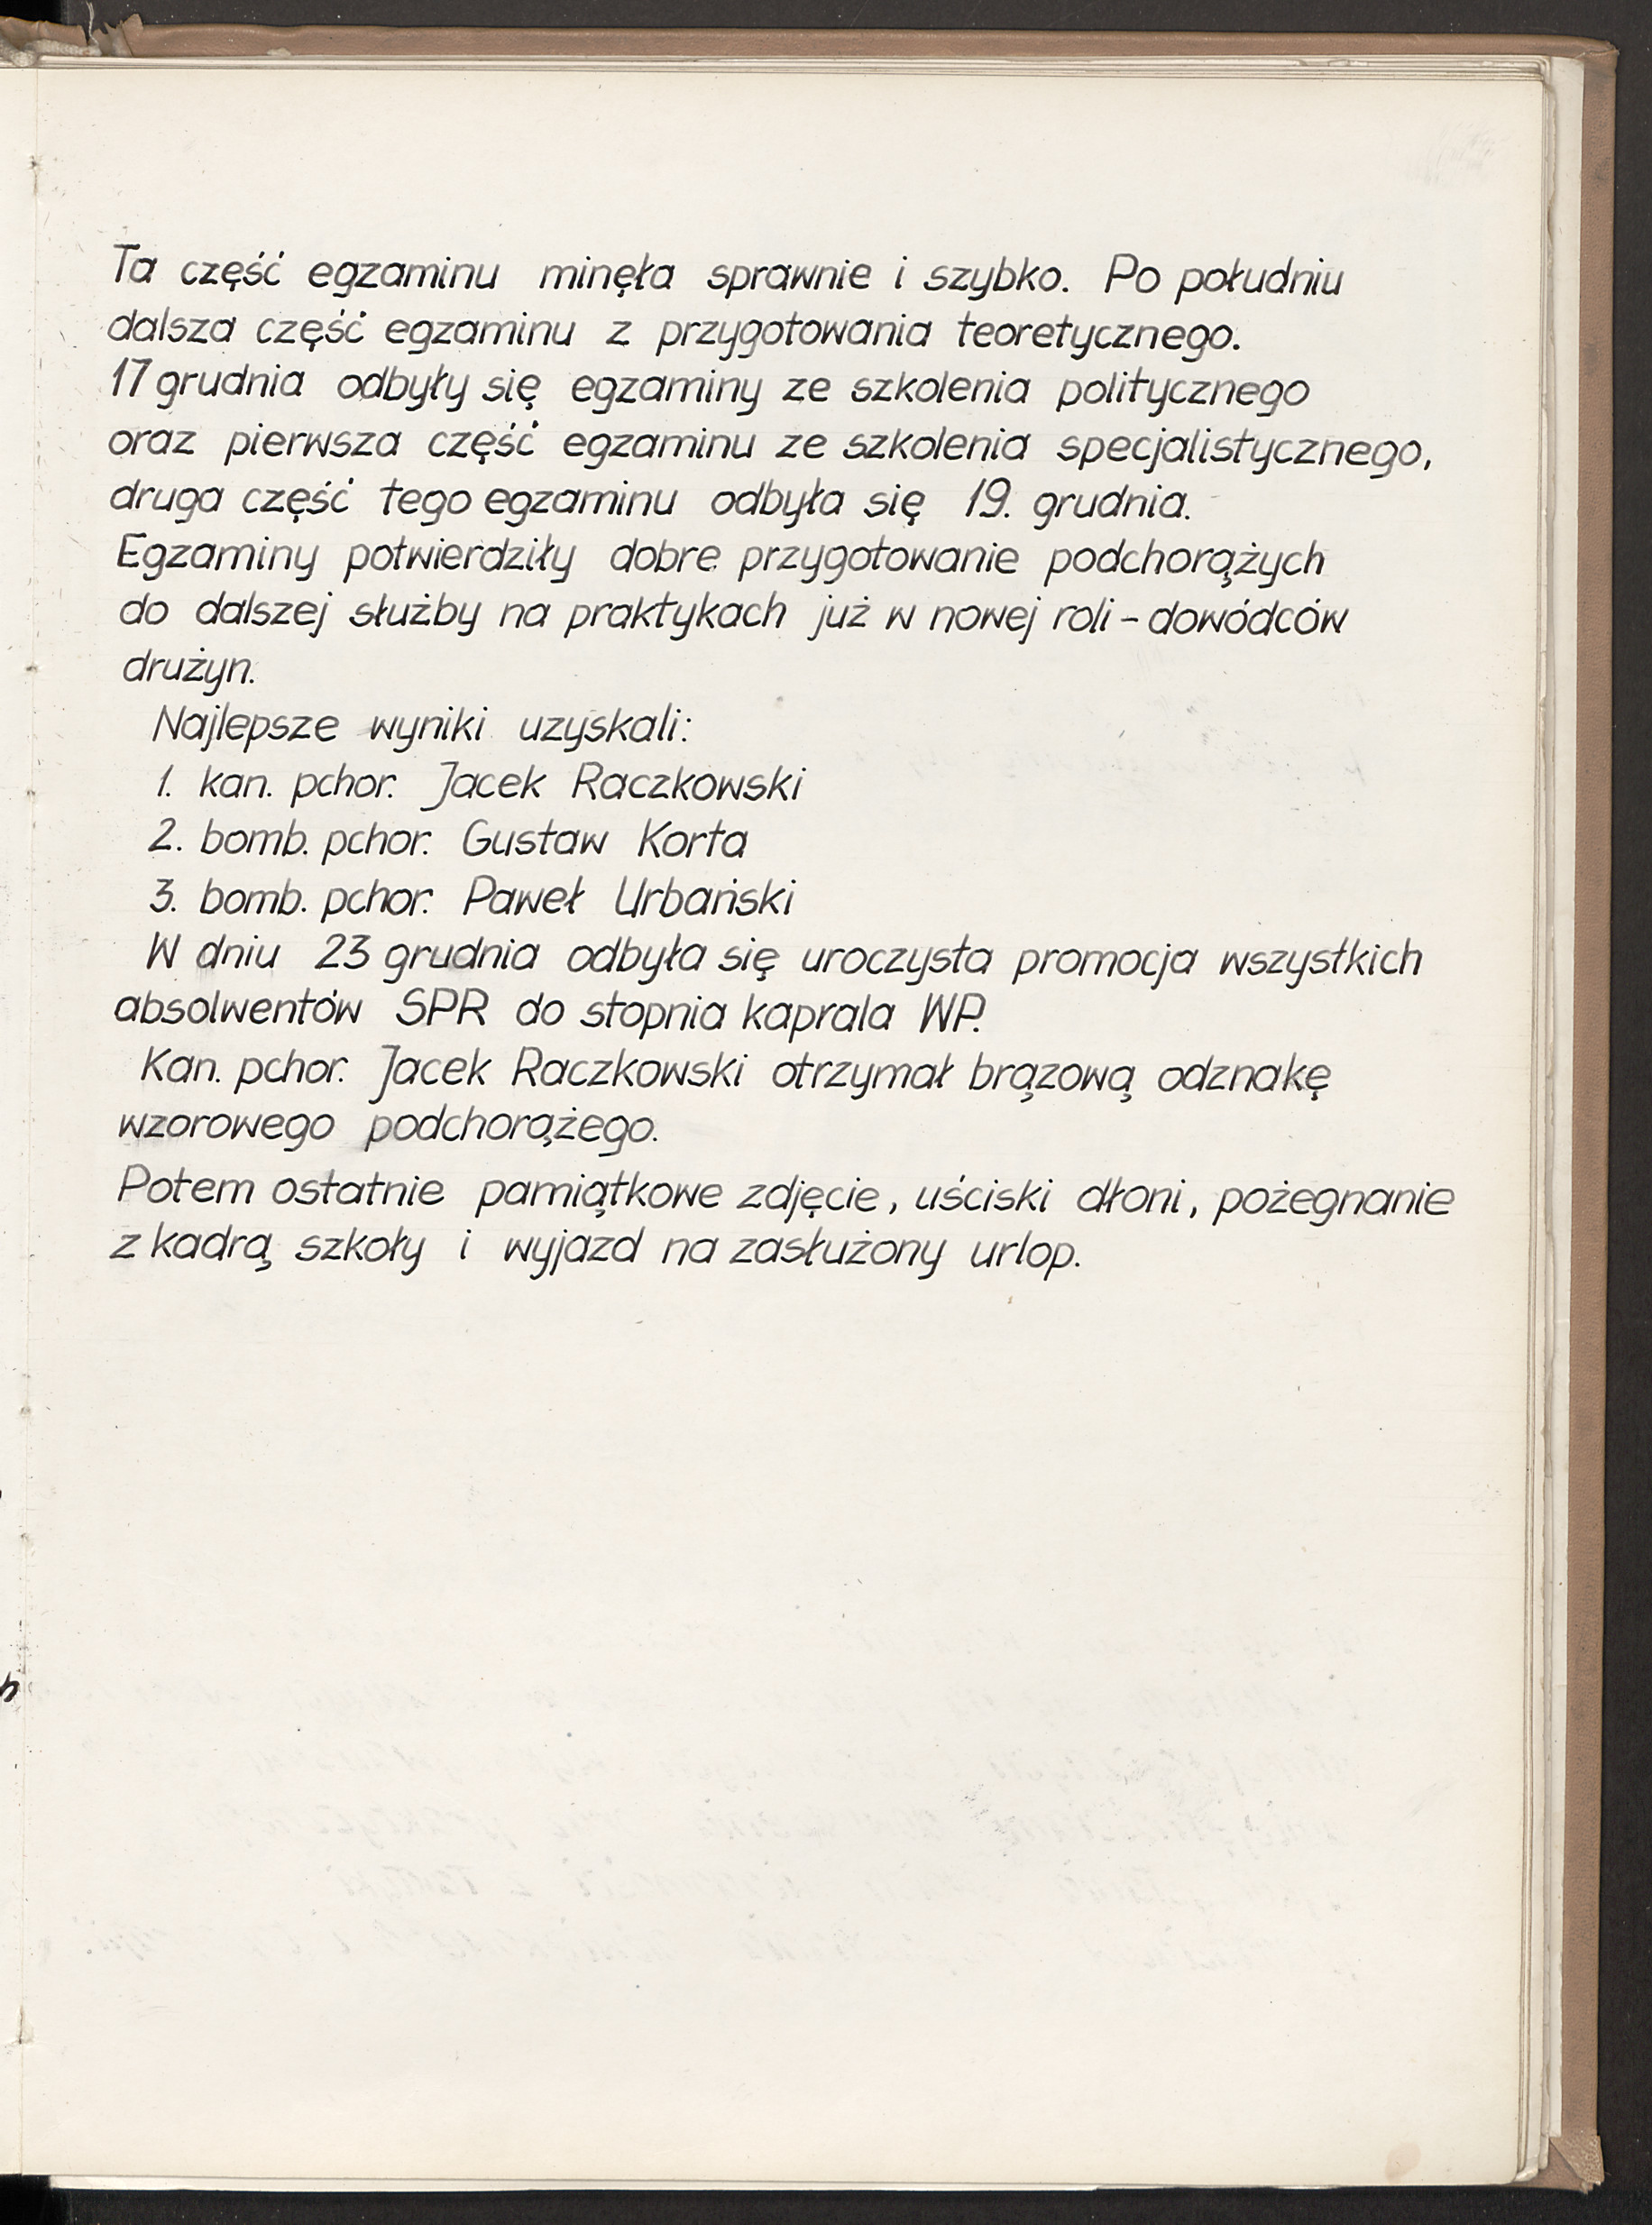 Ta część egzaminu minęła sprawnie i szybko. Po południu
dalsza część egzaminu z przygotowania teoretycznego.
17 grudnia odbyły się egzaminy ze szkolenia politycznego
oraz pierwsza część egzaminu ze szkolenia specjalistycznego,
druga część tego egzaminu odbyła się 19. grudnia.
Egzaminy potwierdziły dobre przygotowanie podchorążych
do dalszej służby na praktykach już w nowej roli - dowódców
drużyn.
Najlepsze wyniki uzyskali:
1. kan. pchor. Jacek Raczkowski
2. bomb. pchor. Gustaw Korta
3. bomb. pchor. Paweł Urbański
W dniu 23 grudnia odbyła się uroczysta promocja wszystkich
absolwentów SPR do stopnia kaprala WP.
Kan. pchor. Jacek Raczkowski otrzymał brązową odznakę
wzorowego podchorążego.
Potem ostatnie pamiątkowe zdjęcie, uściski dłoni, pożegnanie
z kadrą szkoły i wyjazd na zasłużony urlop.